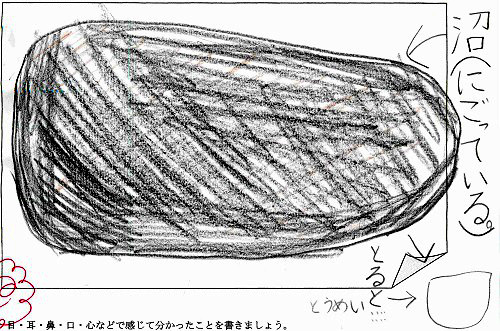 沼(にごっている。)
とると
とうめい
目・耳・鼻・口・心などで感じて分かったことを書きましょう。